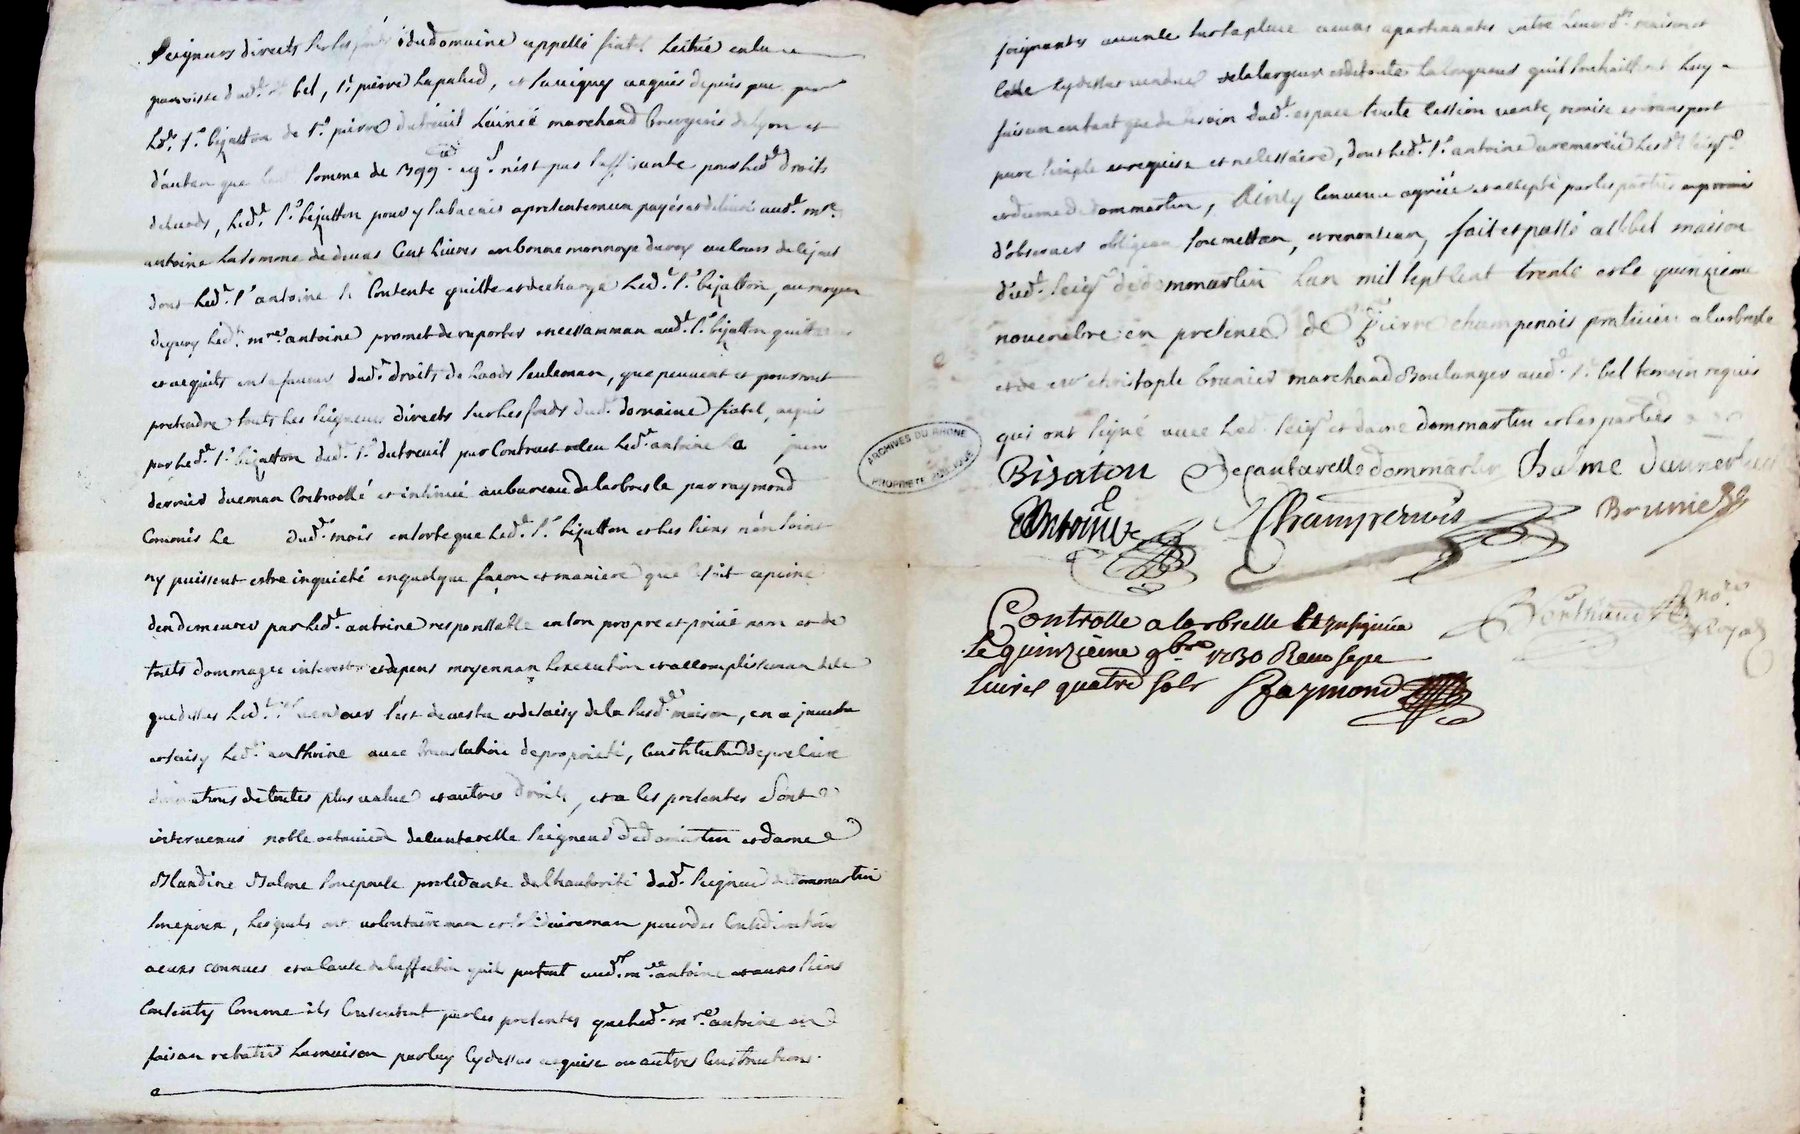 Seigneurs directs sur les fonds dudomaine appellé fiatel scitué en la
paroisse dud.t St bel, Sr pierre lapalud, et par iceluy acquis depuis peu par
led.t Sr bijatton de Sr pierre dutreuil l'ainé marchand bourgeois de lyon et
d'autan que somme de 399 n'est pas suffisante pour led.t droits
de laods, led.t Sr bijatton pour y sub a presentemen payé et delivré aud.t mre
antoine la somme de deux cent livres en bonne monnoye du roy au cours de ce jour
dont led.t Sr antoine se contente quitte et decharge led.t Sr bijatton, au moyen
dequoy led.t mre antoine promet de raporter incessamman aud.t Sr bijatton quittance
et acquits en sa faveur dud.t droits de laods seuleman, que peuvent et pourront
pretendre touts les seigneurs directs sur les fonds dud.t domaine fiatel, acquis
par led.t Sr bijatton dud.t Sr dutreuil par contract receu led.t antoine le juin
dernier dueman controllé et insinué au bureau de larbresle par raymond
commis le dud.t mois en sorte que led.t Sr bijatton et les siens n'en soint
ny puissent estre inquieté en quelque façon et maniere que se soit a peine
den demeurer par led.t antoine responssable en son propre et privé nom et de
touts dommages interestz et depens moyennan l'execution et accomplisseman de ce
que dessus led.t Sr vendeur s'est devestu et desaisy de la susd.t maison, en a jnvestu
et saisy led.t anthoine avec translation de propriété, constitution de precaire
donnations de toutes plus value et autres droits, et a ces presentes sont
intervenus noble octavien decantarelle seigneur de domartin et dame
Blandine Balme son epouse procedante de l'hautorité dud.t seigneur de dommartin
son epoux, lesquels ont volontaireman et solidaireman pour des considerations
a eux connues et a cause de l'affection quils portent aud.t mre antoine et aux siens
consenty comme ils consentent par les presentes que led.t mre antoine en
faisan rebatir la maison par luy cy dessus acquise ou autres constructions
joignantes avance sur la place a eux apartenantes entre leurd.t maison et
celle cy dessus vendue de la largeur et de toute la longueur quil souhaittera luy
faisan en tant que de besoin dud.t espace toute cession vente, remise et transport
pure simple et requise et necessaire, dont led.t Sr antoine a remercié lesd.t seigr
et dame de dommartin, Ainsy convenu agréé et accepté par les parties aux promis
d'observer obligean soumettan, et renontian, fait et passé a St bel maison
dud.t seigr de dommartin lan mil sept cent trente et le quinzieme
novembre en presence de Sr pierre champenois praticien a larbresle
et de Sr christophle brunier marchand Boulanger aud.t St bel temoin requis
qui ont signé avec led.t seigr et dame dommartin et les parties
Bijaton Decantarelle dommartin Balme
Antoine Champenois Brunier
Controllé a larbrelle et insinué
Le quinzieme 9bre 1730 Receu sept
livres quatre sols Raymond
nore Royal
ARCHIVES DU RHONE
PROPRIETE PUBLIQUE